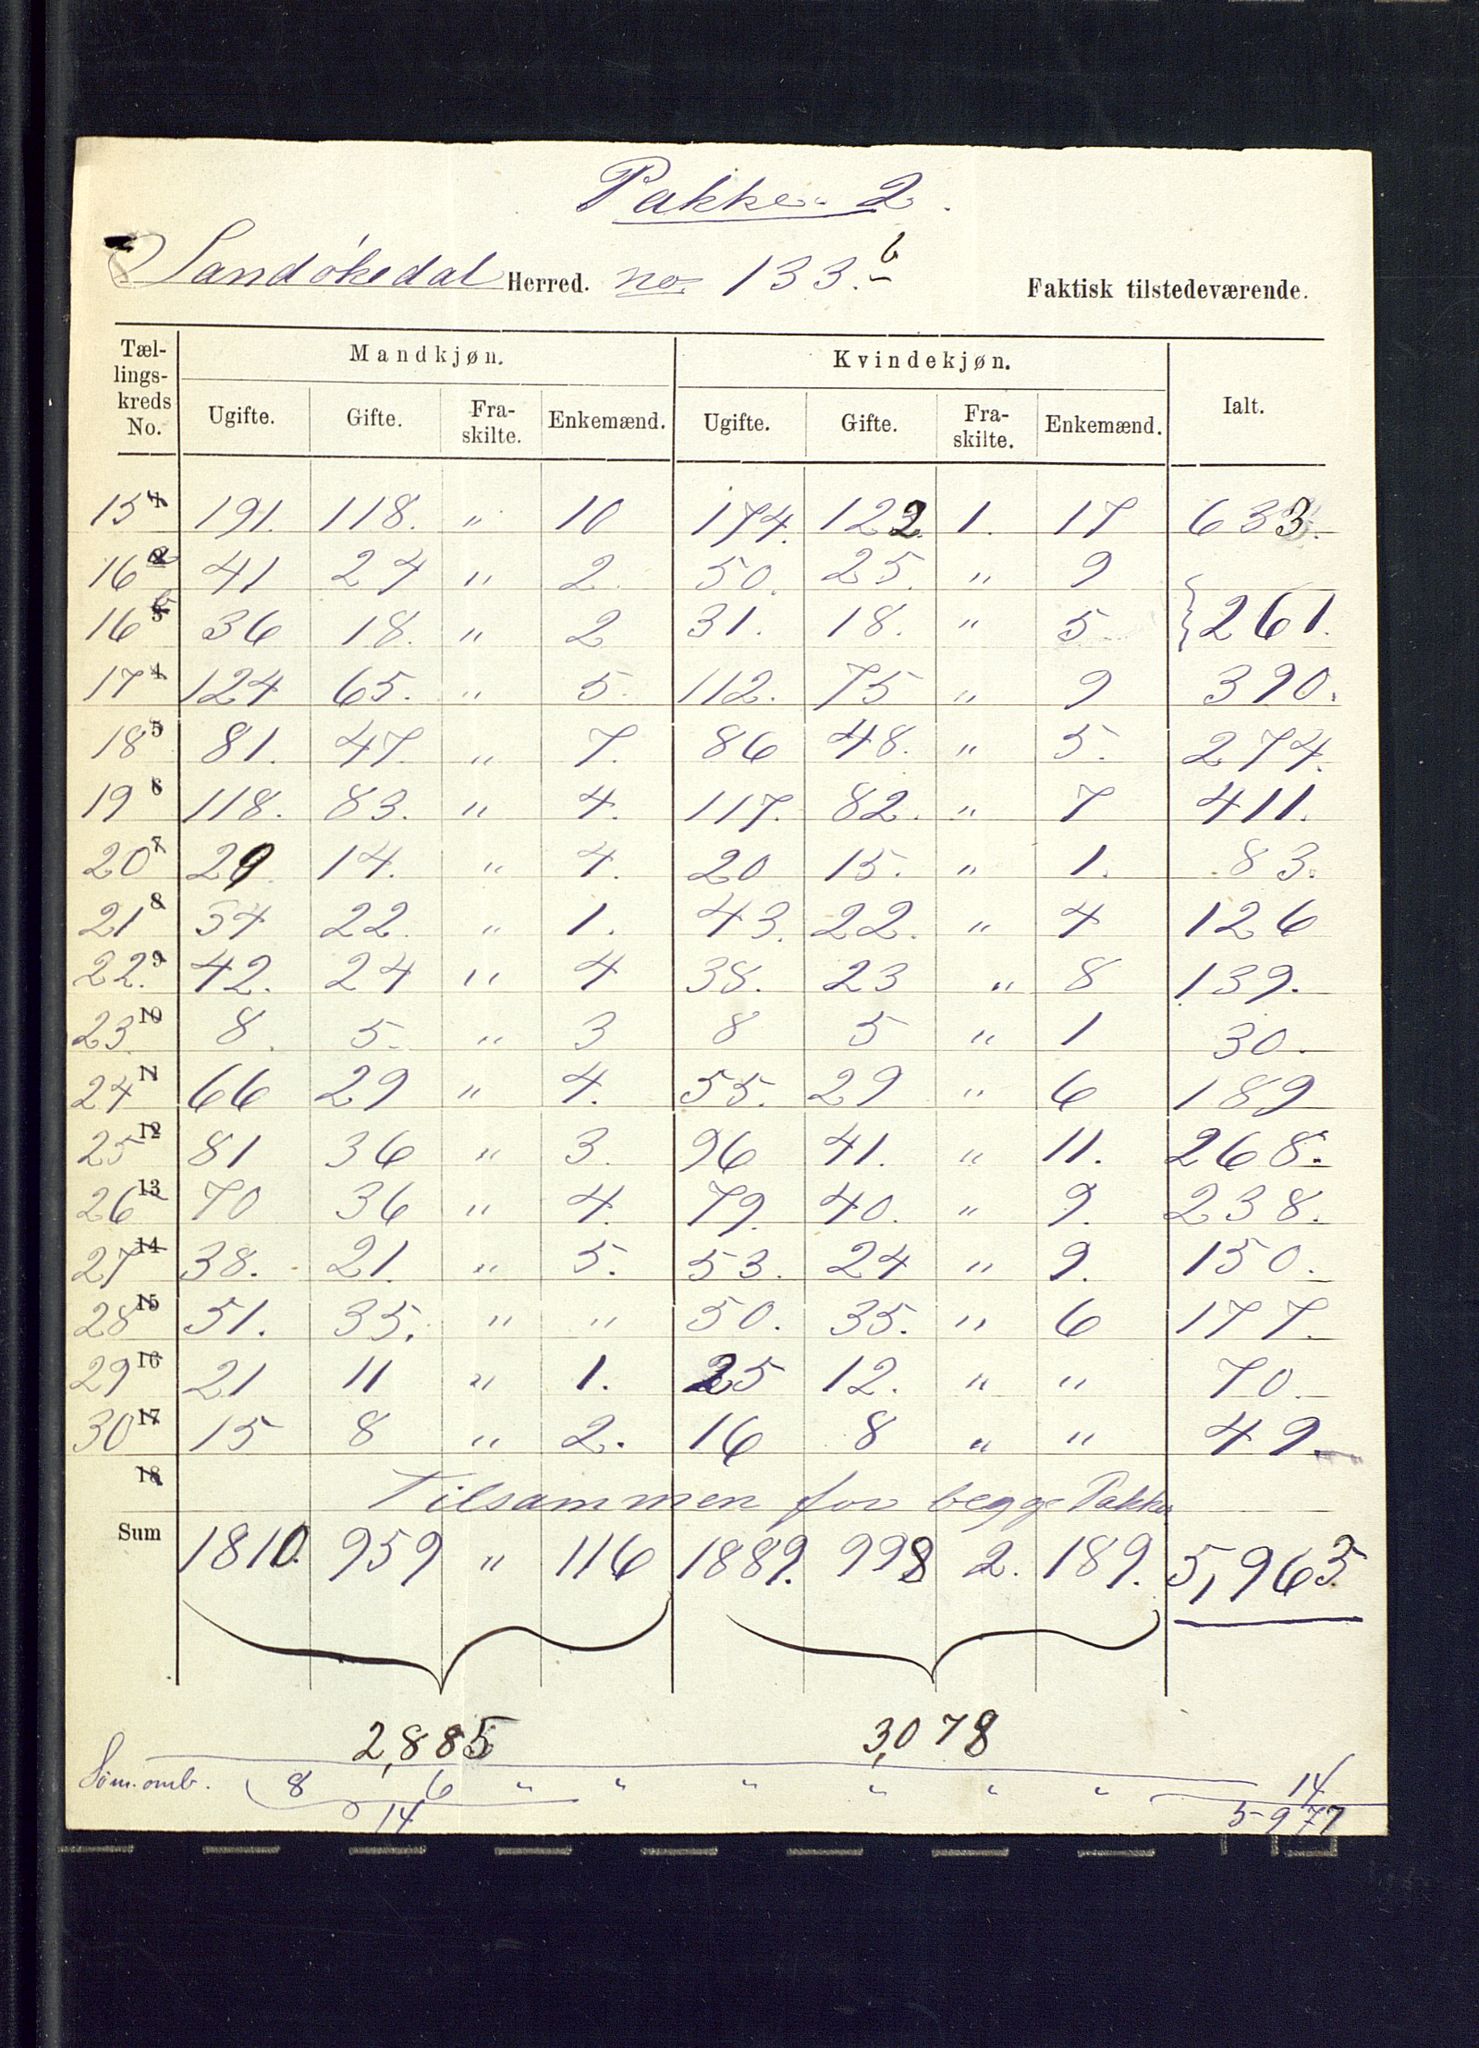 Pakke 2.
Sandøkedal Herred. no. 133.b Faktisk tilstedeværende.
Tæl-lings-kreds No. Mandkjøn. Kvindekjøn. Ialt.
Ugifte. Gifte. Fra-skilte. Enkemænd. Ugifte. Gifte. Fra-skilte. Enkemænd.
15 191. 118. " 10 174. 122 1. 17 633.
16a 41 24 " 2 50. 25. " 9
16b 36 18. " 2 31. 18. " 5 } 261.
17 124 65. " 5. 112. 75 " 9 390.
18 81. 47. " 7. 86 48. " 5. 274.
19 118. 83. " 4. 117. 82. " 7 411.
20 29 14. " 4. 20 15. " 1. 83.
21 34 22. " 1. 43. 22. " 4 126
22. 42. 24 " 4 38. 23 " 8 139.
23 8. 5. " 3 8 5 " 1 30.
24 66 29 " 4. 55. 29 " 6 189
25 81 36 " 3. 96 41. " 11. 268.
26 70 36 " 4. 79. 40. " 9. 238.
27 38. 21. " 5. 53. 24 " 9. 150.
28 51. 35. " " 50. 35. " 6 177.
29 21 11 " 1. 25 12. " " 70.
30 15 8 " 2. 16 8 " " 49.
18 Tilsammen for begge Pakker
Sum 1810. 959 " 116 1889. 998 2. 189. 5,963
2,885 3,078
Søm. omb. 8 6 " " " " " " 14
14 5977